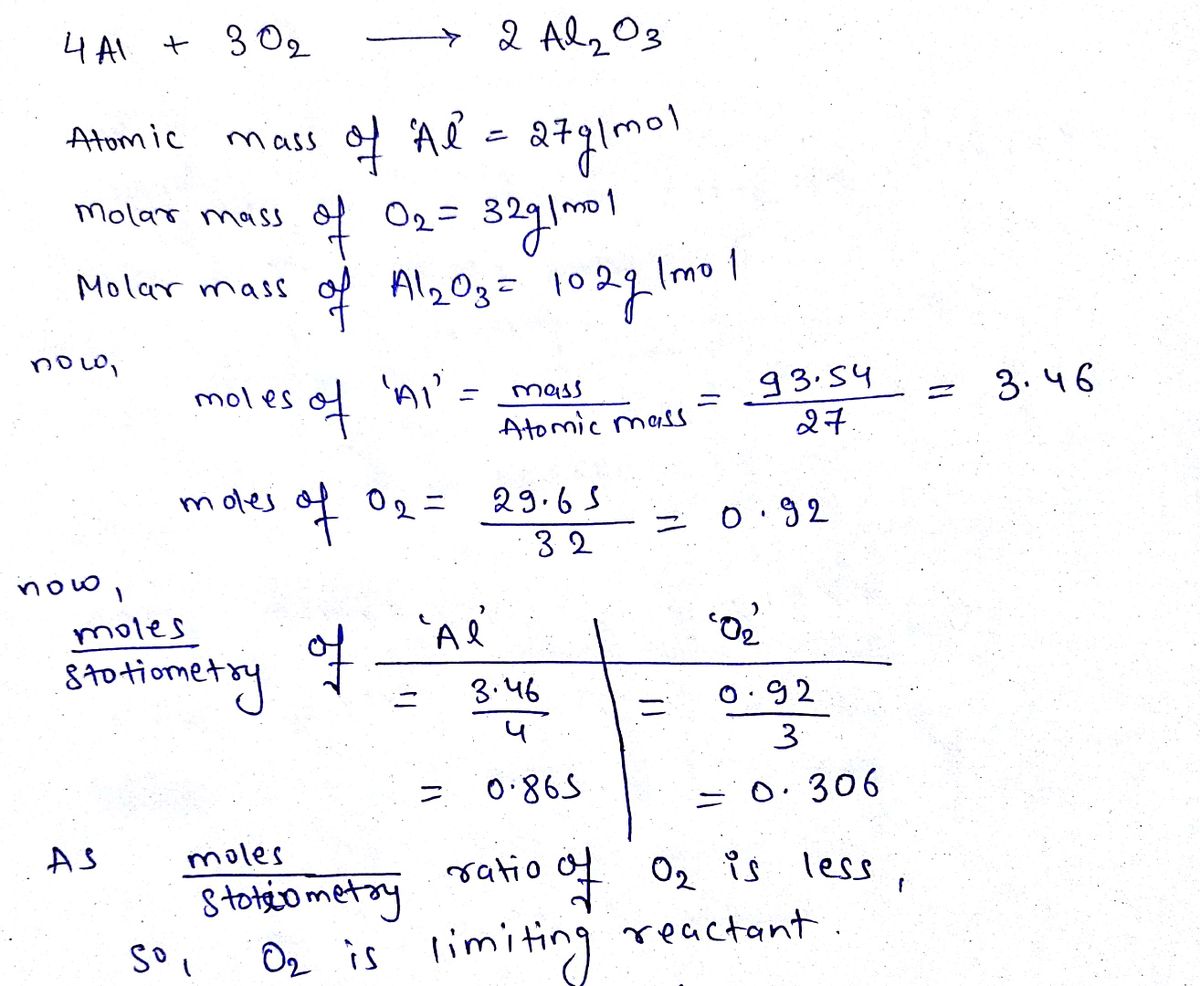 4 Al + 3 O2 ⟶ 2 Al2O3
Atomic mass of 'Al' = 27g/mol
Molar mass of O2 = 32g/mol
Molar mass of Al2O3 = 102g/mol
now,
moles of 'Al' = mass / Atomic mass = 93.54 / 27 = 3.46
moles of O2 = 29.65 / 32 = 0.92
now,
moles / Stotiometry of 'Al' | 'O2'
= 3.46 / 4 | = 0.92 / 3
= 0.865 | = 0.306
As moles / Stotiometry ratio of O2 is less,
so, O2 is limiting reactant.